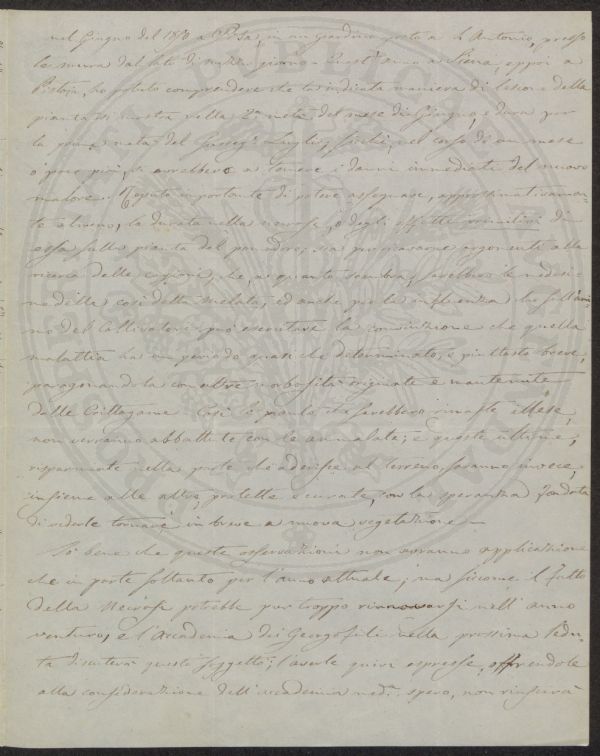 nel Giugno del 1870 a Pisa, in un giardino posto a S. Antonio, presso
le mura dal lato di mezzo giorno. Quest'anno a Siena, eppoi a
Pistoja, ho potuto comprendere che la indicata maniera di lesione della
pianta si mostra nella 2a metà del mese di Giugno, e dura per
la prima metà del Luglio; sicchè, nel corso di un mese
o poco più, si avrebbero a temere i danni immediati del nuovo
malore. Reputo importante di potere assegnare, approssimativamen-
te almeno, la durata nella necrosi, o degli effetti primitivi di
essa sulla pianta del pomodoro, sia per cavarne argomenti alla
ricerca delle cagioni, che, a quanto sembra, sarebbero le medesi-
me della così detta melata, ed anche per la influenza che sull'ani-
mo dei Coltivatori può esercitare la convinzione che quella
malattia ha un periodo quasi che determinato, e piuttosto breve,
paragonandola con altre morbosità originate e mantenute
dalle Crittogame. Così le piante che sarebbero rimaste illese,
non verranno abbattute con le ammalate; e queste ultime,
risparmiate nella parte che aderisce al terreno, saranno invece,
insieme alle altre, protette e curate, con la speranza fondata
di vederle tornare in breve a nuova vegetazione. —
So bene che queste osservazioni non avranno applicazione
che in parte soltanto per l'anno attuale; ma siccome il fatto
della Necrosi potrebbe pur troppo rinnovarsi nell'anno
venturo, e l'Accademia dei Georgofili nella prossima Sedu-
ta discuterà questo soggetto; l'averle quivi espresse, offrendole
alla considerazione dell'Accademia med.a spero, non riuscirà